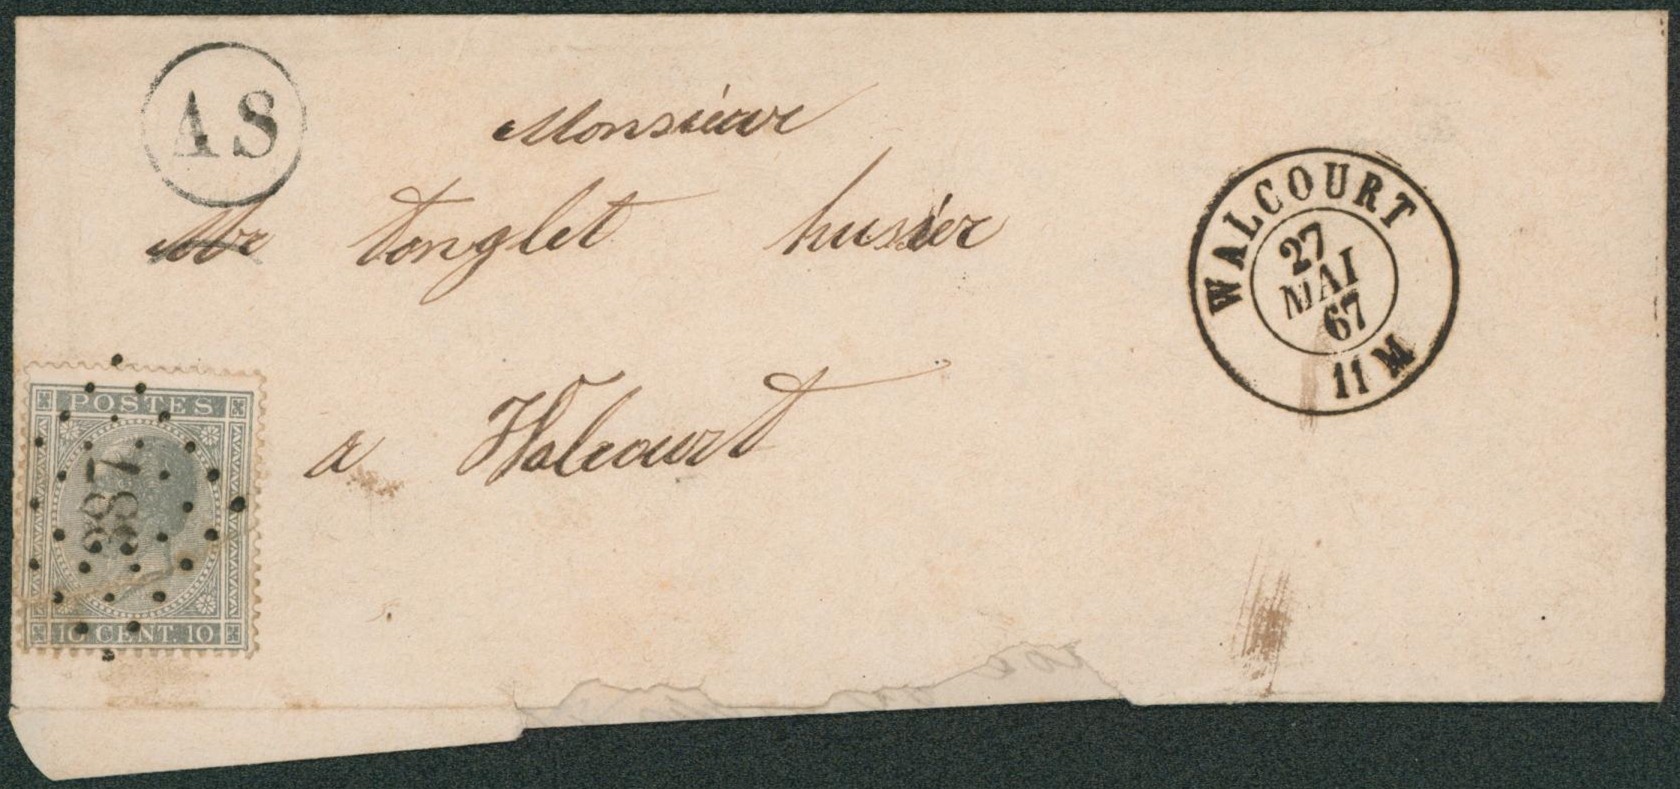 A S
Monsieur
Mr tonglet husier
a Walcourt
WALCOURT
27
MAI
67
11 M
POSTES
387
10 CENT. 10